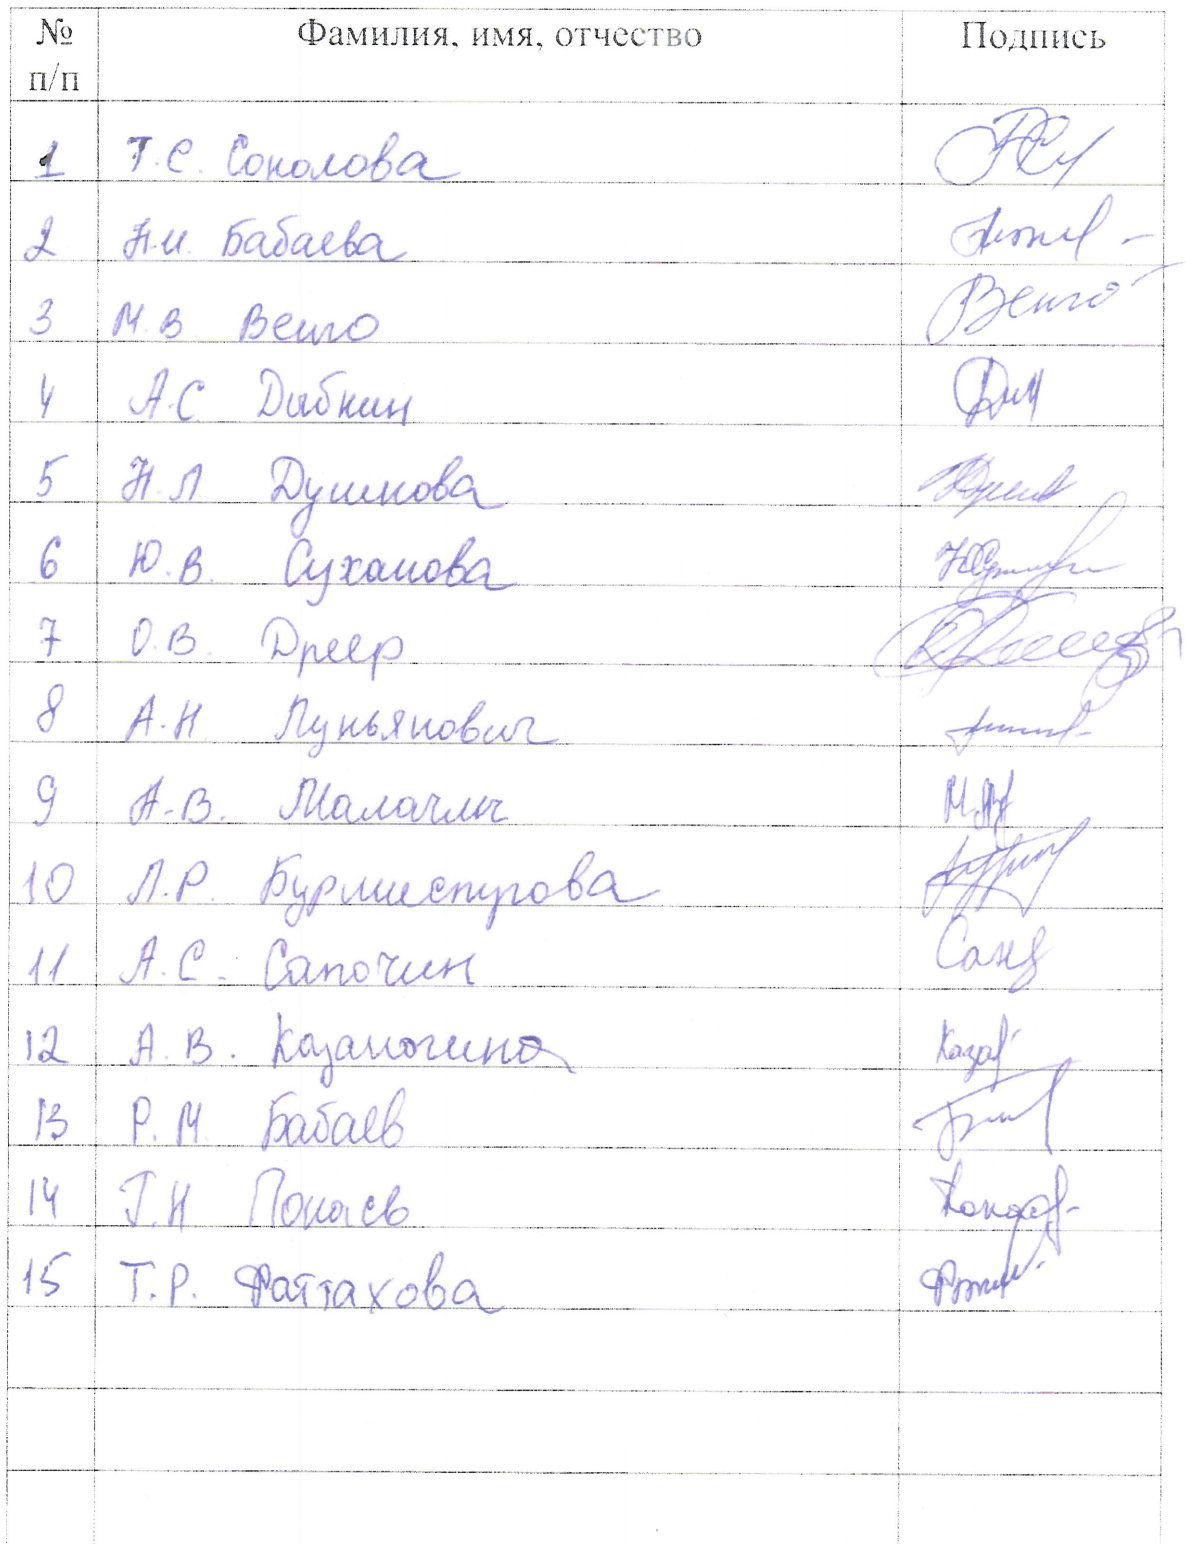 № п/п Фамилия, имя, отчество Подпись
1 Т.С. Соколова
2 Н.И. Бабаева
3 М.В. Венго Венго
4 А.С. Дыбкин
5 Н.Л. Душкова
6 Ю.В. Суханова
7 О.В. Дреер
8 А.Н. Лукьянович
9 А.В. Малачлы
10 Л.Р. Бурмиструова
11 А.С. Сапочин
12 А.В. Казаногина
13 Р.М. Бабаев
14 Г.Н. Понаев
15 Т.Р. Фаттахова